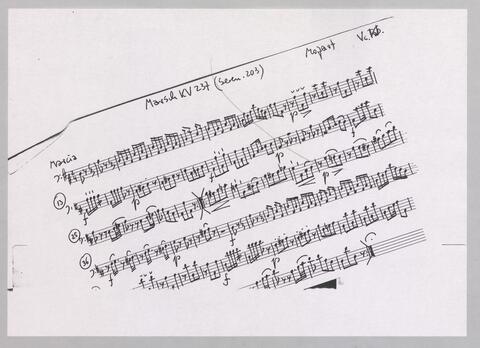 Mozart Vc.
Marsch KV 237 (Seren. 203)
Marcia
p
13
f
p
f
25
p
p
36
f
p
f
p
f
f